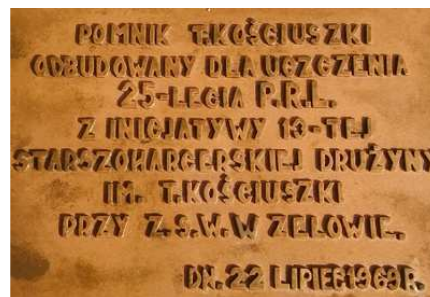 POMNIK T.KOŚCIUSZKI
ODBUDOWANY DLA UCZCZENIA
25-LECIA P.R.L.
Z INICJATYWY 13-TEJ
STARSZOHARCERSKIEJ DRUŻYNY
IM. T.KOŚCIUSZKI
PRZY Z.S.W. W ZELOWIE.
DN. 22 LIPIEC 1969 R.